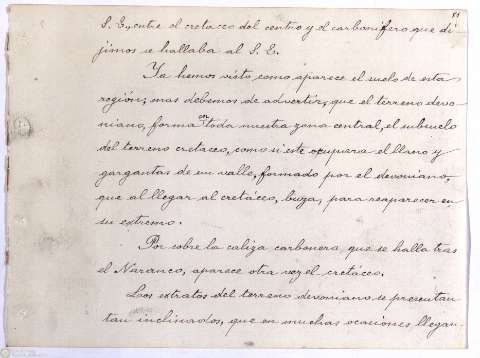 51
S. E., entre el cretaceo del centro y el carbonifero que di-
jimos se hallaba al S. E.
Ya hemos visto como aparece el suelo de esta
región; mas debemos de advertir, que el terreno devo-
niano, forma en toda nuestra zona central, el subsuelo
del terreno cretaceo, como si este ocupara el llano y
gargantas de un valle, formado por el devoniano,
que al llegar al cretáceo, buza, para reaparecer en
su extremo.
Por sobre la caliza carbonera, que se halla tras
el Naranco, aparece otra vez el cretáceo.
Los extratos del terreno devoniano se presentan
tan inclinados, que en muchas ocasiones llegan